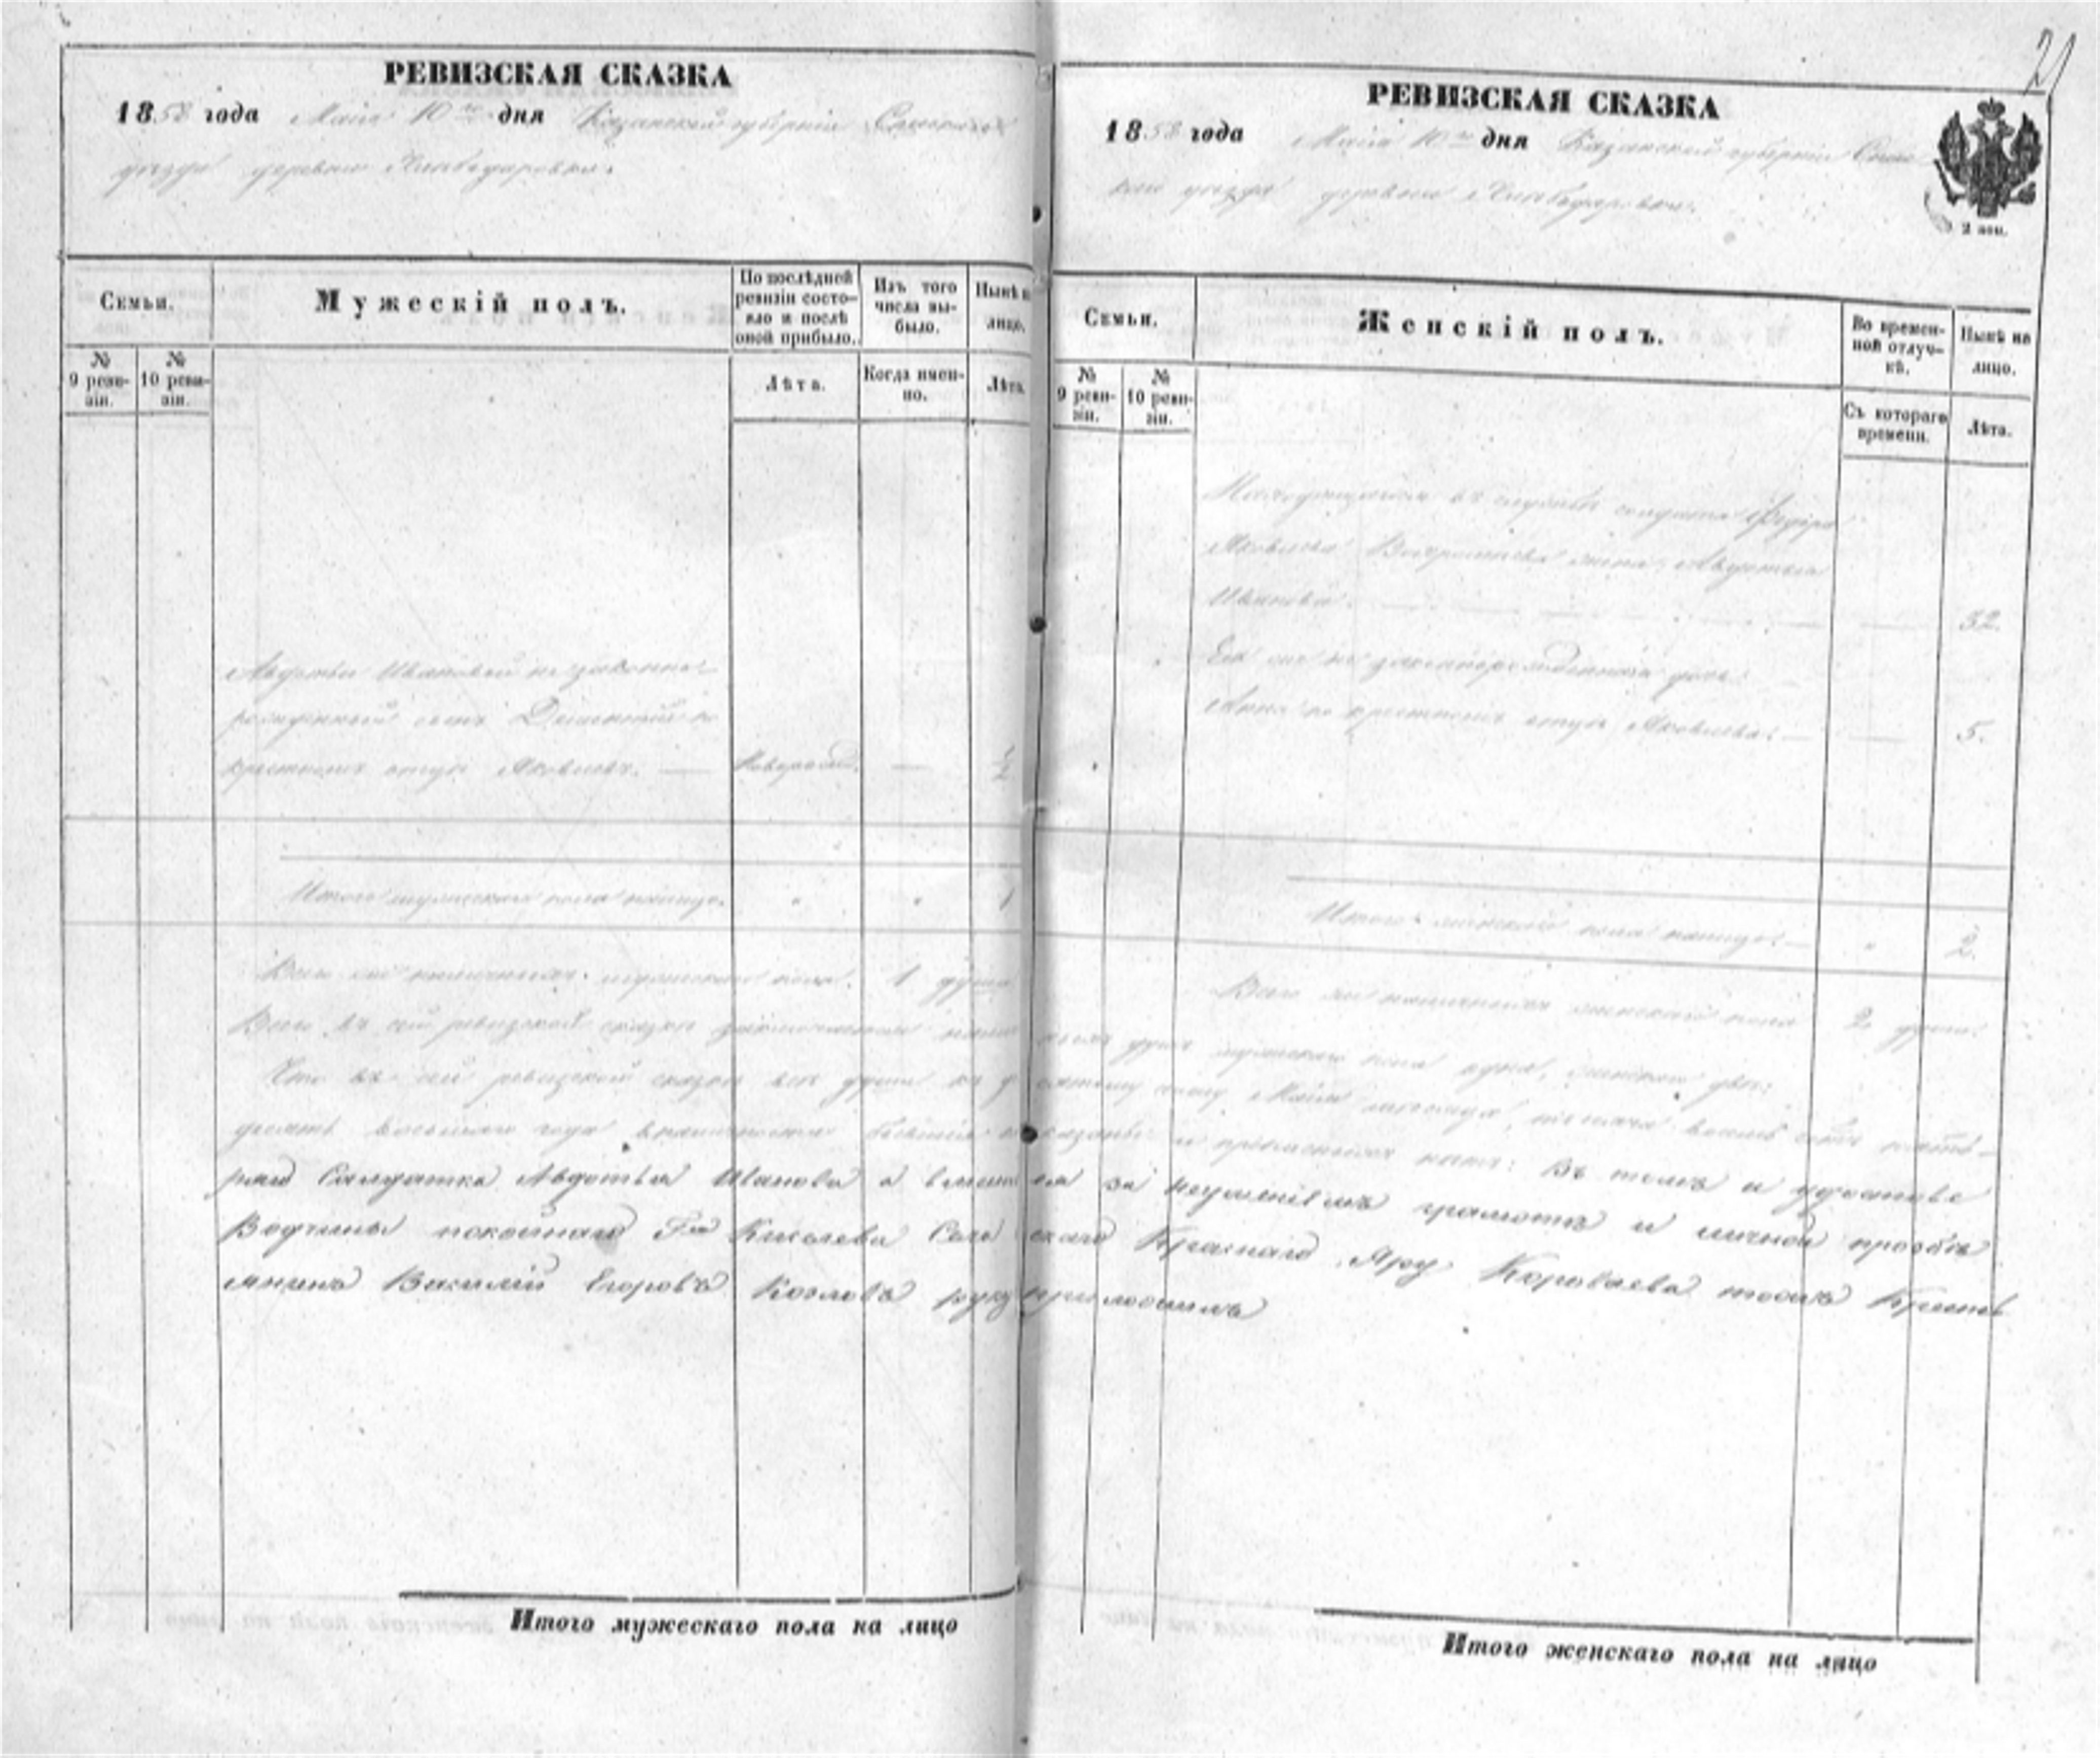 21
РЕВИЗСКАЯ СКАЗКА
1858 года Маія 10го дня Казанской губерніи Спаскаго
уѣзда деревни
Семьи.
Мужескій полъ.
По послѣдней ревизіи состояло и послѣ оной прибыло.
Изъ того числа выбыло.
Нынѣ н лицо.
№ 9 ревизіи.
№ 10 ревизіи.
Лѣта.
Когда именно.
Лѣта.
Авдотьи Ивановой незаконно
рожденный сынъ по
крестному отцу Яковлевъ. — Новорожд. —
Итого мужескаго пола налицо. " " 1
Всего наличныхъ мужескаго пола. 1 душа
РЕВИЗСКАЯ СКАЗКА
1858 года Маія 10го дня Казанской губерніи Спас
каго уѣзда деревни
2 коп.
Семьи.
Женскій полъ.
Во временной отлучкѣ.
Нынѣ на лицо.
№ 9 ревизіи.
№ 10 ревизіи.
Съ котораго времени.
Лѣта.
Находящагося въ службѣ солдата Федора
Яковлева жена Авдотья
Иванова. — 32.
Ея незаконнорожденная дочь
Анна по крестному отцу Яковлева. — — 5.
Итого женскаго пола налицо — " 2.
Всего наличныхъ женскаго пола 2 души
Всего въ сей ревизской сказкѣ душъ мужескаго пола одна, женскаго двѣ.
Что въ сей ревизской сказкѣ всѣ души къ десятому числу Маія тысяча восемь сотъ пять-
десять восьмаго года бывшія показаны и прописныхъ нѣтъ: Въ томъ и удостове
ряю Салдатка Авдотья Иванова а вместо ея за неуменіемъ грамотѣ и личной прозбѣ
Вотчины покойнаго Гна Киселева Сельскаго Краснаго Яру Короваева тожъ Кресть
янинъ Василій Егоровъ Козловъ руку приложилъ
Итого мужескаго пола на лицо
Итого женскаго пола на лицо